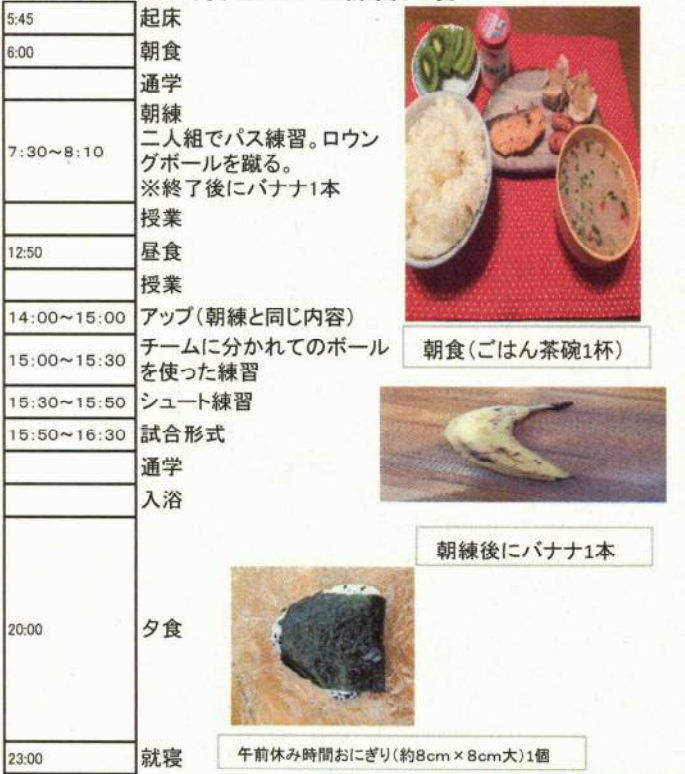 5:45 起床
6:00 朝食
通学
朝練
7:30～8:10 二人組でパス練習。ロウン
グボールを蹴る。
※終了後にバナナ1本
授業
12:50 昼食
授業
14:00～15:00 アップ(朝練と同じ内容)
15:00～15:30 チームに分かれてのボール
を使った練習
15:30～15:50 シュート練習
15:50～16:30 試合形式
通学
入浴
20:00 夕食
23:00 就寝
朝食(ごはん茶碗1杯)
朝練後にバナナ1本
午前休み時間おにぎり(約8cm×8cm大)1個